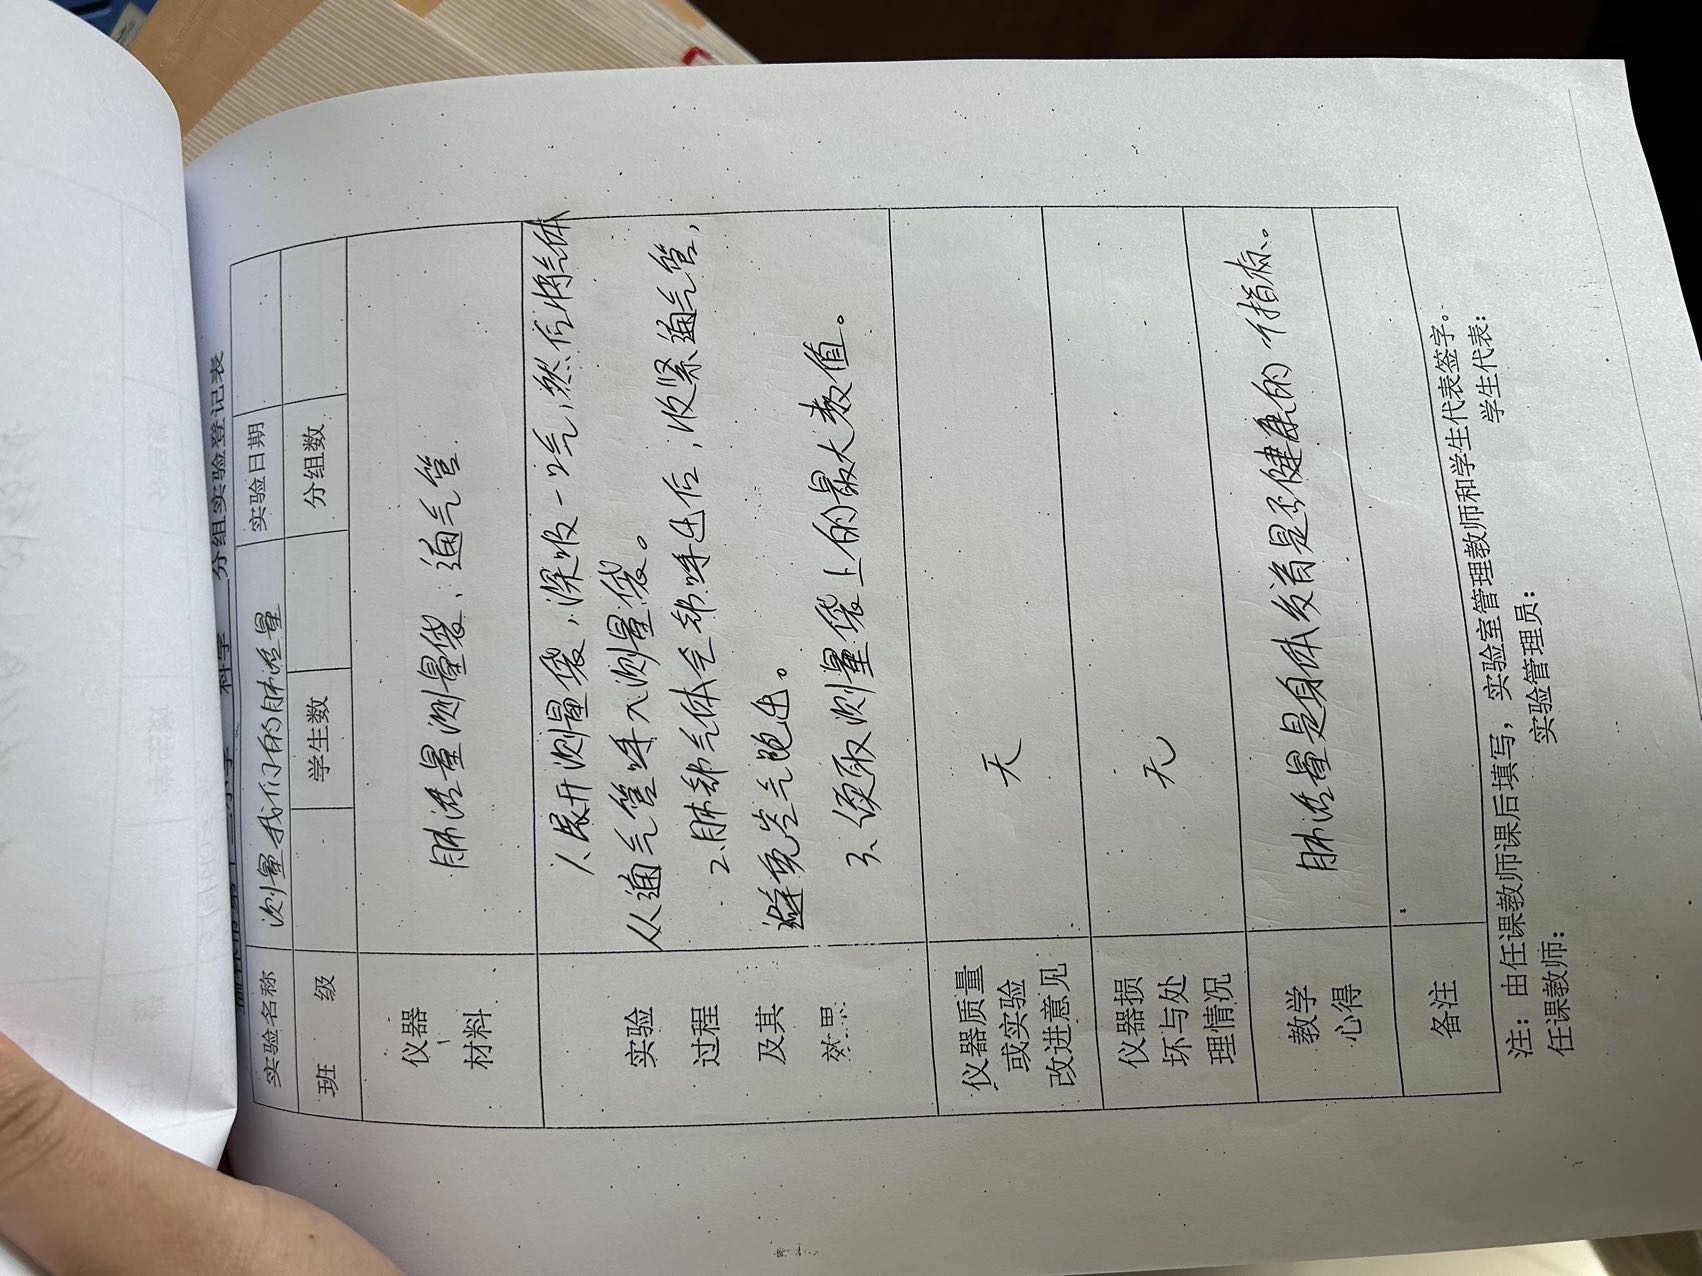 科学 分组实验登记表
实验名称 测量我们的肺活量 实验日期
班 级 学生数 分组数
仪器 材料 肺活量测量袋、通气管
实验 过程 及其 效果
1、展开测量袋,深吸一口气,然后将气体
从通气管呼入测量袋。
2、肺部气体全部呼出后,收紧通气管,
避免空气跑出。
3、读取测量袋上的最大数值。
仪器质量 或实验 改进意见 无
仪器损 坏与处 理情况 无
教学 心得 肺活量是身体发育是否健康的一个指标。
备注
注:由任课教师课后填写,实验室管理教师和学生代表签字。
任课教师: 实验管理员: 学生代表: